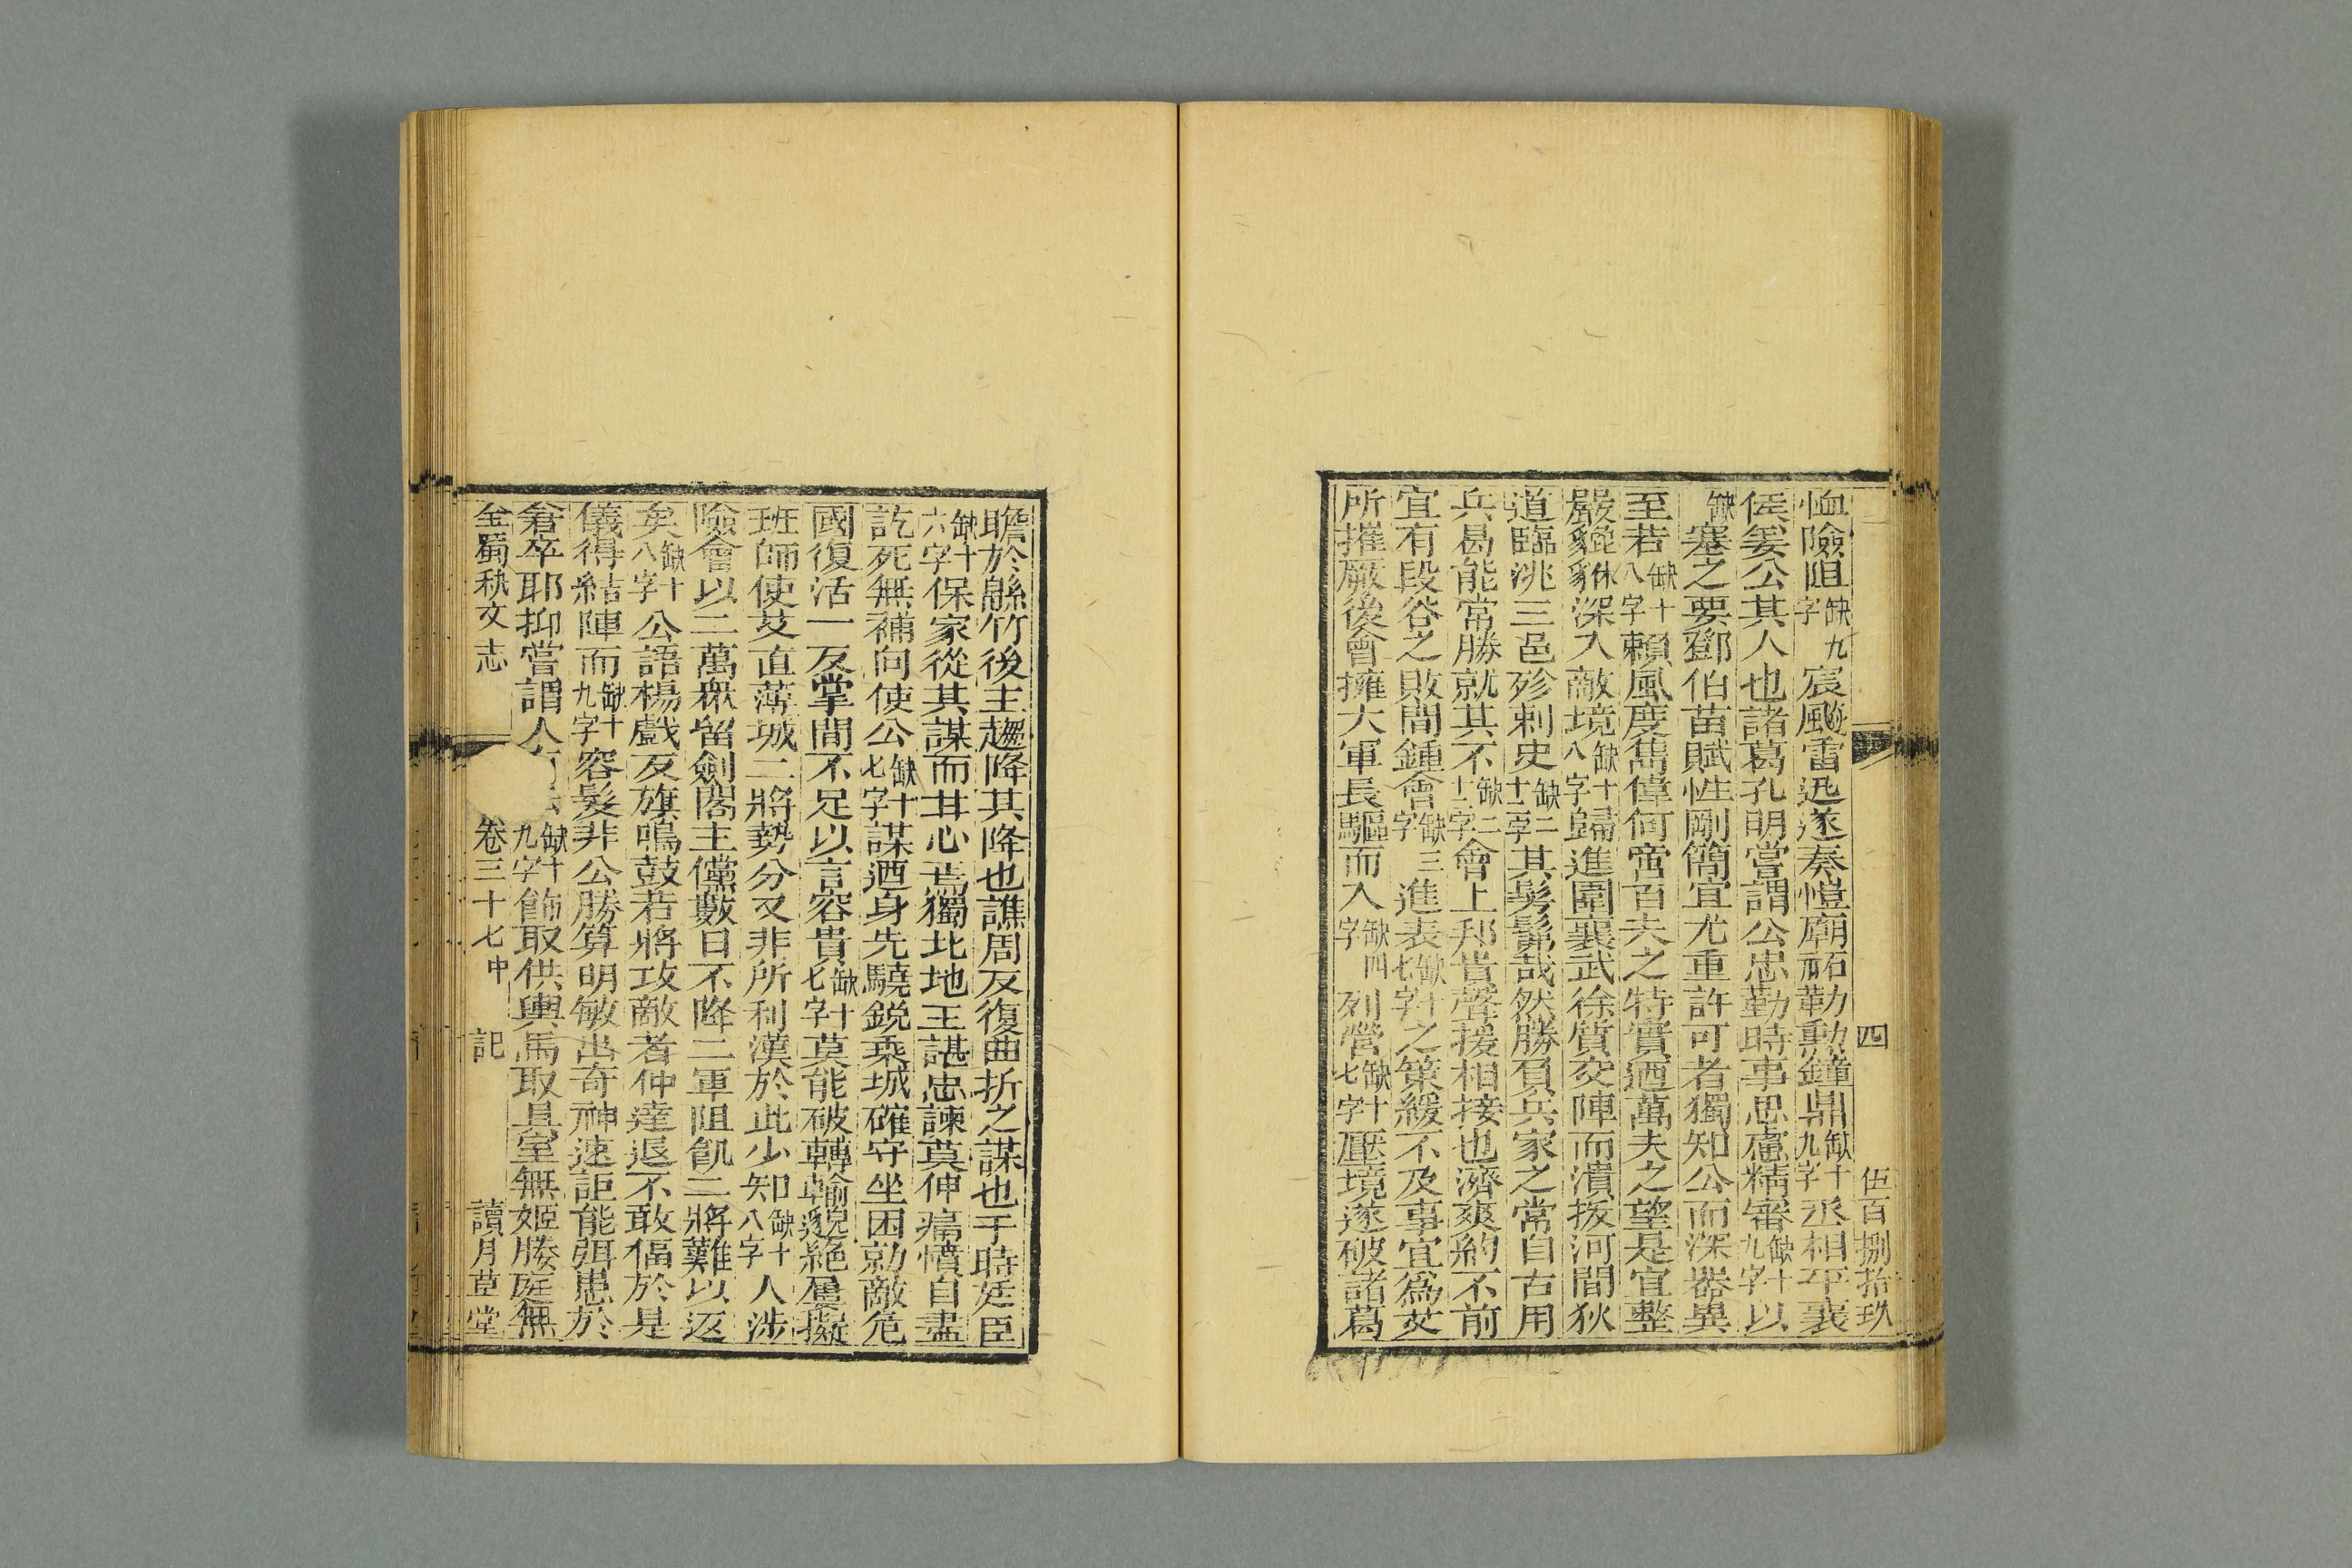 四 伍百捌拾玖
恤險阻缺九字宸颷雷迅遂奏愷廟祏勒勳鐘鼎缺十九字丞相平襄
侯姜公其人也諸葛孔明嘗謂公忠勤時事思慮精審缺十九字以
缺塞之要鄧伯苗賦性剛簡宜尤重許可者獨知公而深器異
至若缺十八字賴風度雋偉何啻百夫之特實迺萬夫之望是宜整
嚴貔貅豹深入敵境缺十八字歸進圍襄武徐質交陣而潰拔河間狄
道臨洮三邑殄刺史缺二十二字其髣髴哉然勝負兵家之常自古用
兵曷能常勝就其不缺二十二字會上邽貴聲援相接也濟爽約不前
宜有段谷之敗間鍾會缺三字進表缺十七字之策緩不及事宜爲艾
所摧厥後會擁大軍長驅而入缺四字列營缺十七字壓境遂破諸葛
瞻於緜竹後主趣降其降也譙周反復曲折之謀也于時廷臣
缺十六字保家從其謀而甘心焉獨北地王諶忠諫莫伸痛憤自盡
訖死無補向使公缺十七字謀迺身先驍銳乘城確守坐困勍敵危
國復活一反掌間不足以言容貴缺十七字莫能破轉輸邈絶屢擬
班師使艾直薄城二將勢分又非所利漢於此少知缺十八字人涉
險會以二萬衆留劍閣主儻數日不降二軍阻飢二將難以返
矣缺十八字公語楊戲反旗鳴鼓若將攻敵者仲達退不敢偪於是
儀得結陣而缺十九字容髮非公勝算明敏出奇神速詎能弭患於
倉卒耶抑嘗謂人缺十九字飾取供輿馬取具室無姬媵庭無
全蜀秇文志 卷三十七中 記 讀月草堂